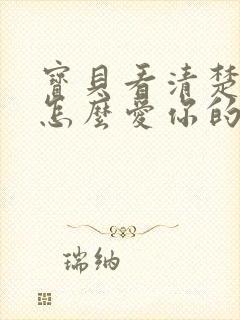 寶貝看清楚
怎麼愛你的
瑞納